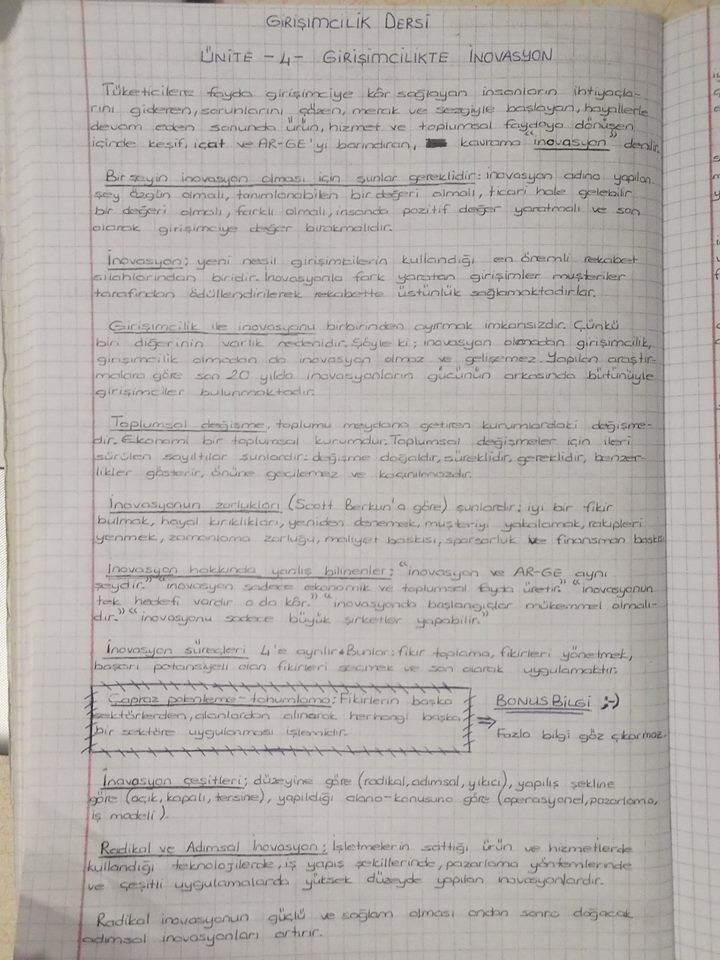 GİRİŞİMCİLİK DERSİ
ÜNİTE - 4 - GİRİŞİMCİLİKTE İNOVASYON
Tüketicilere fayda girişimciye kâr sağlayan insanların ihtiyaçla-
rını gideren, sorunlarını çözen, merak ve sezgiyle başlayan, hayallerle
devam eden sonunda ürün, hizmet ve toplumsal faydaya dönüşen
içinde keşif, icat ve AR-GE'yi barındıran, kavrama "inovasyon" denilir.
Bir şeyin inovasyon olması için şunlar gereklidir: inovasyon adına yapılan
şey özgün olmalı, tanımlanabilen bir değeri olmalı, ticari hale gelebilir
bir değeri olmalı, farklı olmalı, insanda pozitif değer yaratmalı ve son
olarak girişimciye değer bırakmalıdır.
İnovasyon; yeni nesil girişimcilerin kullandığı en önemli rekabet
silahlarından biridir. İnovasyonla fark yaratan girişimler müşteriler
tarafından ödüllendirilerek rekabette üstünlük sağlamaktadırlar.
Girişimcilik ile inovasyonu birbirinden ayırmak imkansızdır. Çünkü
biri diğerinin varlık nedenidir. Şöyle ki; inovasyon olmadan girişimcilik,
girişimcilik olmadan da inovasyon olmaz ve gelişemez. Yapılan araştır-
malara göre son 20 yılda inovasyonların gücünün arkasında bütünüyle
girişimciler bulunmaktadır.
Toplumsal değişme, toplumu meydana getiren kurumlardaki değişme-
dir. Ekonomi bir toplumsal kurumdur. Toplumsal değişmeler için ileri
sürülen sayıltılar şunlardır: değişme doğaldır, süreklidir, gereklidir, benzer-
likler gösterir, önüne geçilemez ve kaçınılmazdır.
İnovasyonun zorlukları (Scott Berkun'a göre) şunlardır: iyi bir fikir
bulmak, hayal kırıklıkları, yeniden denemek, müşteriyi yakalamak, rakipleri
yenmek, zamanlama zorluğu, maliyet baskısı, sparsarluk ve finansman baskı
İnovasyon hakkında yanlış bilinenler; "inovasyon ve AR-GE aynı
şeydir." "inovasyon sadece ekonomik ve toplumsal fayda üretir." "inovasyonun
tek hedefi vardır o da kâr." "inovasyonda başlangıçlar mükemmel olmalı-
dır." "inovasyonu sadece büyük şirketler yapabilir."
İnovasyon süreçleri 4'e ayrılır. Bunlar: fikir toplama, fikirleri yönetmek,
başarı potansiyeli olan fikirleri seçmek ve son olarak uygulamaktır.
Çapraz polenleme-tohumlama: Fikirlerin başka
sektörlerden, alanlardan alınarak herhangi başka
bir sektöre uygulanması işlemidir.
⇒ BONUS BİLGİ ;-)
Fazla bilgi göz çıkarmaz.
İnovasyon çeşitleri; düzeyine göre (radikal, adımsal, yıkıcı), yapılış şekline
göre (açık, kapalı, tersine), yapıldığı alana-konusuna göre (operasyonel, pazarlama,
iş modeli).
Radikal ve Adımsal İnovasyon: İşletmelerin sattığı ürün ve hizmetlerde
kullandığı teknolojilerde, iş yapış şekillerinde, pazarlama yöntemlerinde
ve çeşitli uygulamalarda yüksek düzeyde yapılan inovasyonlardır.
Radikal inovasyonun güçlü ve sağlam olması ondan sonra doğacak
adımsal inovasyonları artırır.